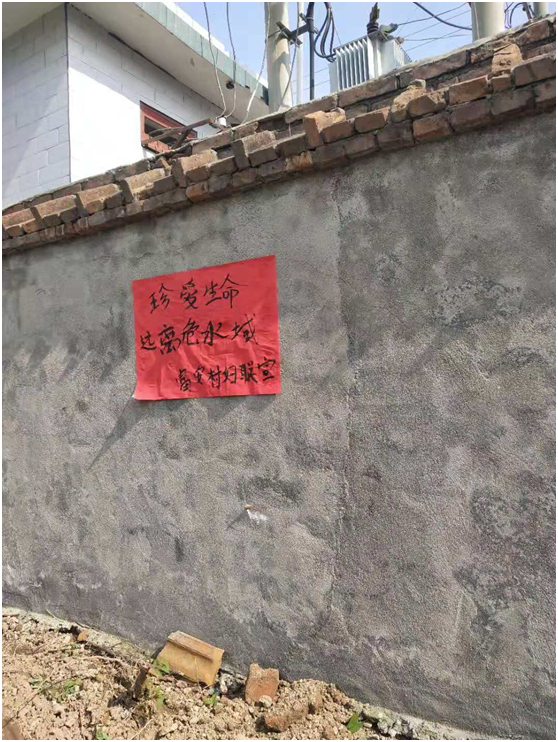 珍爱生命
远离危水域
安村妇联宣